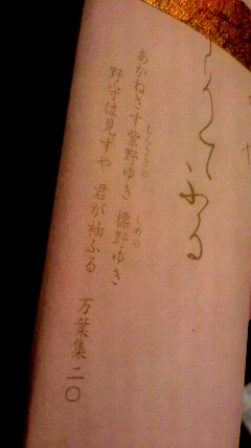 うして ふる
あかねさす紫野ゆき 標野ゆき
むらさきの
しめの
野守は見ずや 君が袖ふる 万葉集二〇